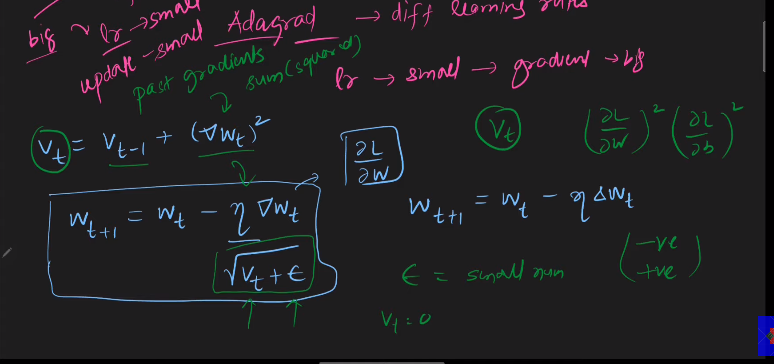 big ~ lr → small Adagrad → diff learning rates
update - small
past gradients
sum(squared)
lr → small → gradient → big
V_t = V_{t-1} + (∇W_t)^2
∂L/∂W
V_t (∂L/∂W)^2 (∂L/∂b)^2
W_{t+1} = W_t - η ∇W_t / √(V_t + ϵ)
W_{t+1} = W_t - η ΔW_t
ϵ = small num (-ve +ve)
V_t = 0